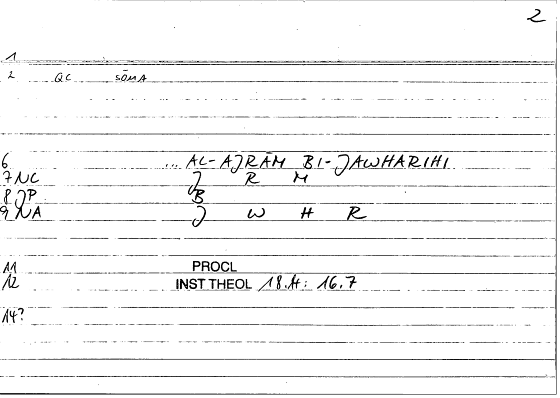 2
1
2 QC SŌMA
6 ... AL-AJRĀM BI-JAWHARIHI
7 NC J R M
8 JP B
9 NA J W H R
11 PROCL
12 INST THEOL 18.H: 16.7
14?